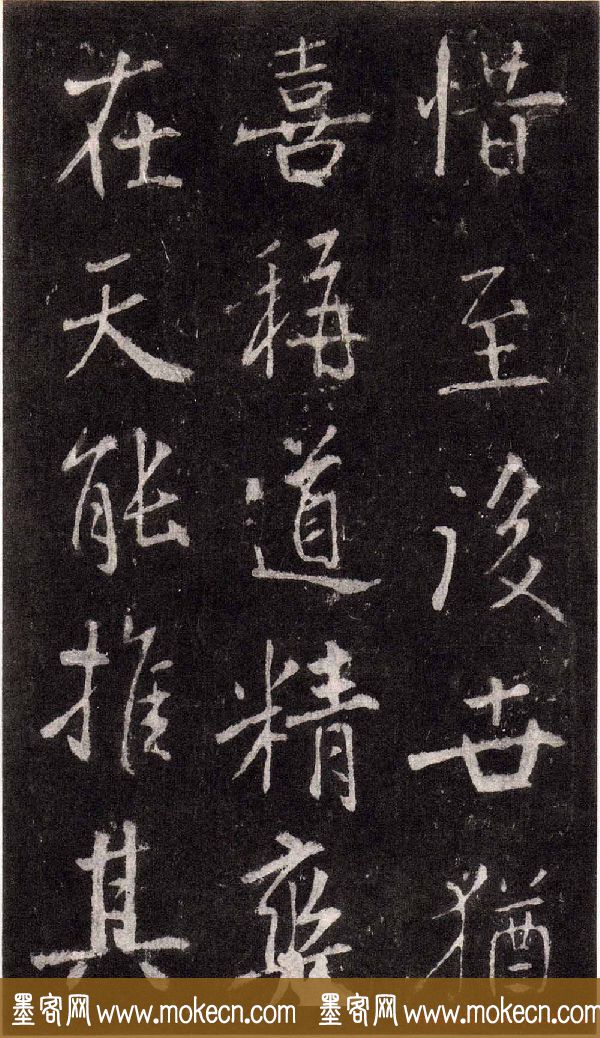 惜至後世猶
喜稱道精爽
在天能推其
墨客网 www.mokecn.com 墨客网 www.mokecn.com